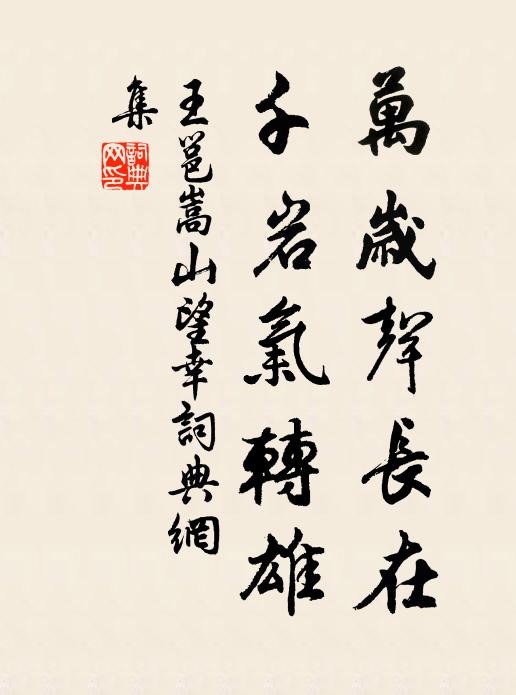 萬歲聲長在
千岩氣轉雄
王邕嵩山望幸詞典網
集
詞典網印